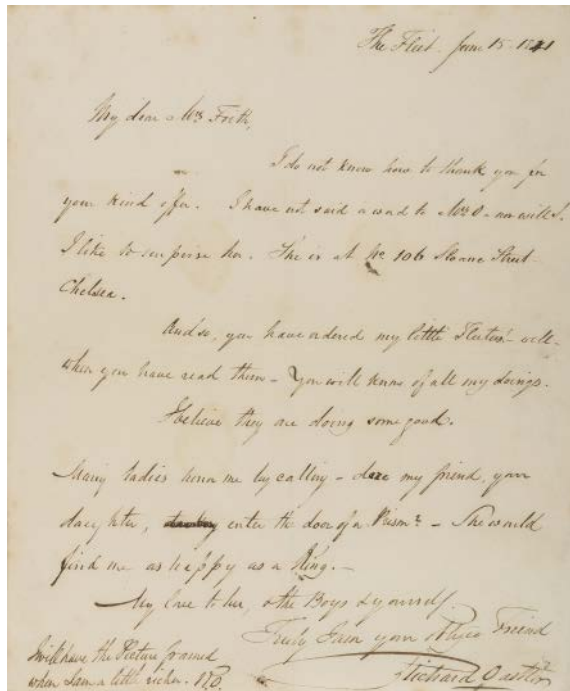 The Fleet. June 15. 1841
My dear Mrs Frith,
I do not know how to thank you for
your kind offer. I have not said a word to Mrs O - nor will I.
I like to surprise her. She is at No 106 Sloane Street
Chelsea.
And so, you have ordered my little Fleeters! - well -
when you have read them - You will know of all my doings.
I believe they are doing some good.
Many Ladies honor me by calling - dare my friend, your
daughter, enter the door of a Prison? - She would
find me as happy as a King. -
My love to her, & the Boys & yourself.
Truly I am your Friend
Richard Oastler
I will have the Picture framed
when I am a little richer. R.O.